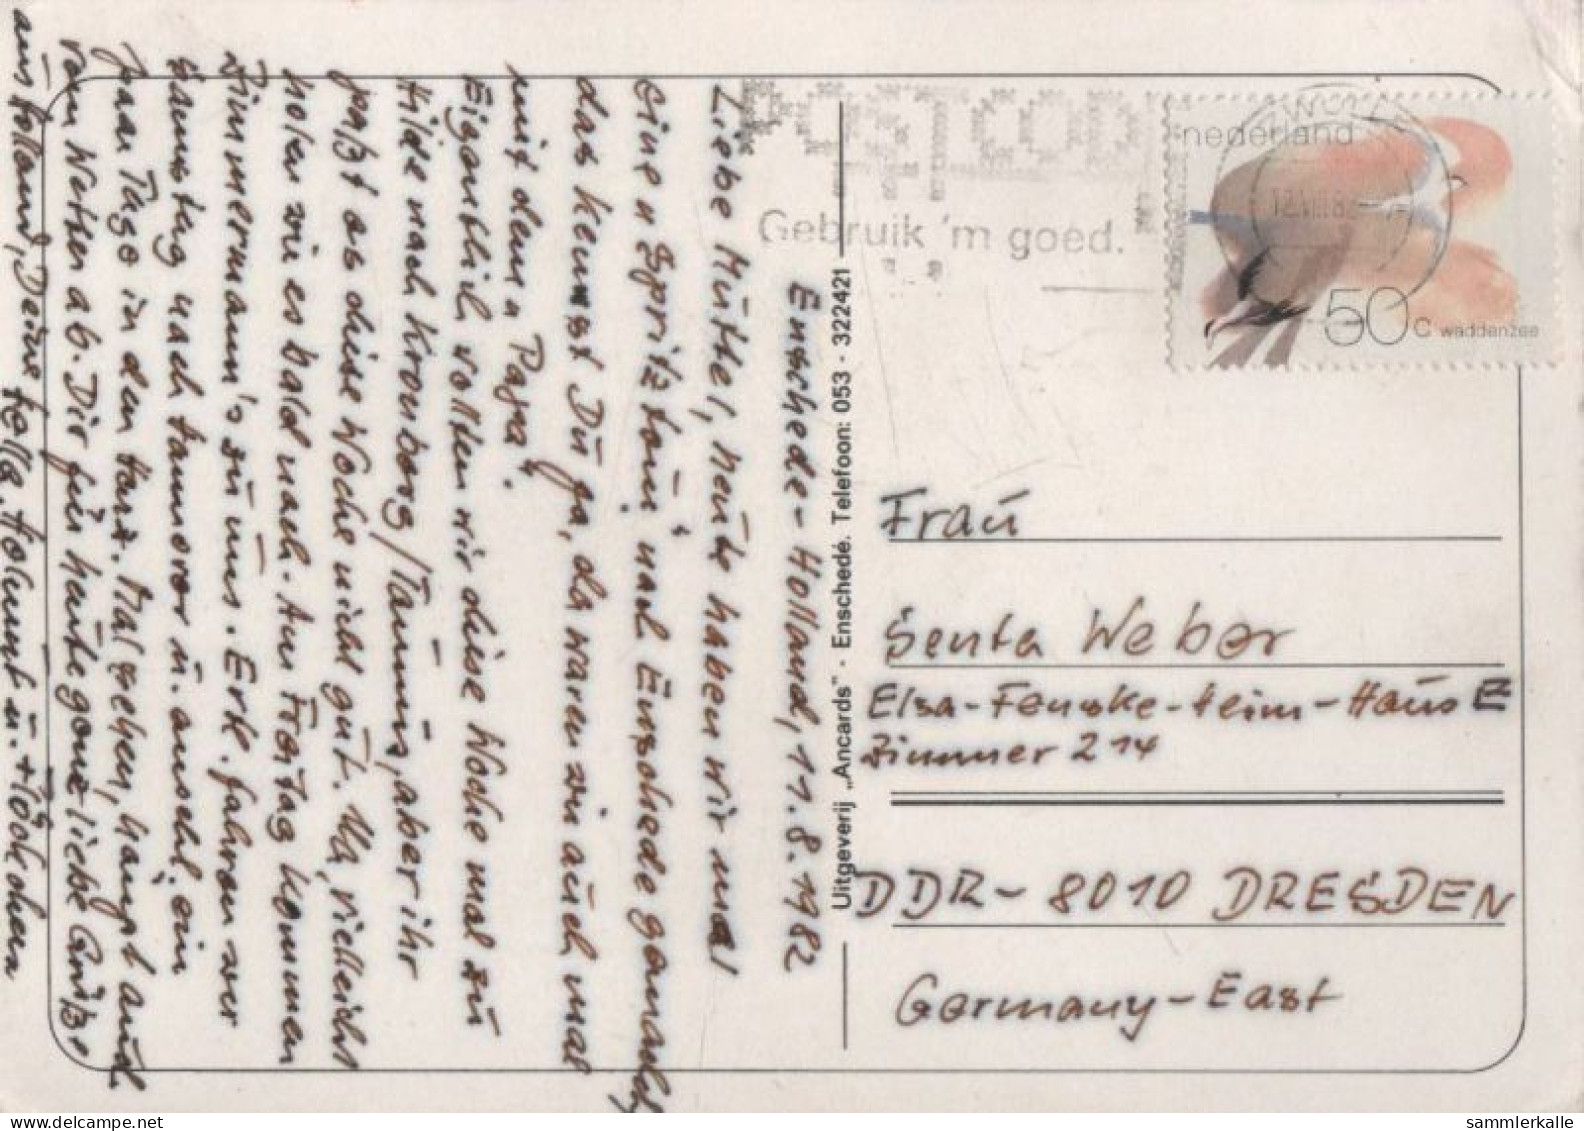 Enschede-Holland, 11.8.1982
Liebe Muttel, heute haben wir mal
eine „Spritztour“ nach Enschede gemacht
das kennst Du ja, da waren wir auch mal
mit dem „Papa“.
Eigentlich wollten wir diese Woche mal zu
Hilde nach Kronberg/Taunus, aber ihr
paßt es diese Woche nicht gut. Na, vielleicht
holen wir es bald nach. Am Freitag kommen
Zimmermann's zu uns. Evtl. fahren wir
Samstag nach Hannover u. anschl. ein
paar Tage in den Harz. Mal sehen, hängt auch
vom Wetter ab. Dir für heute ganz liebe Grüße
aus Holland, Deine Helga, Helmut u.
Uitgeverij „Ancards“ - Enschedé. Telefoon: 053 - 322421
Gebruik 'm goed.
nederland
12.VIII.82
50c waddenzee
Frau
Senta Weber
Elsa-Fenske-Heim-Haus E
Zimmer 214
DDR-8010 DRESDEN
Germany-East
sammlerkalle